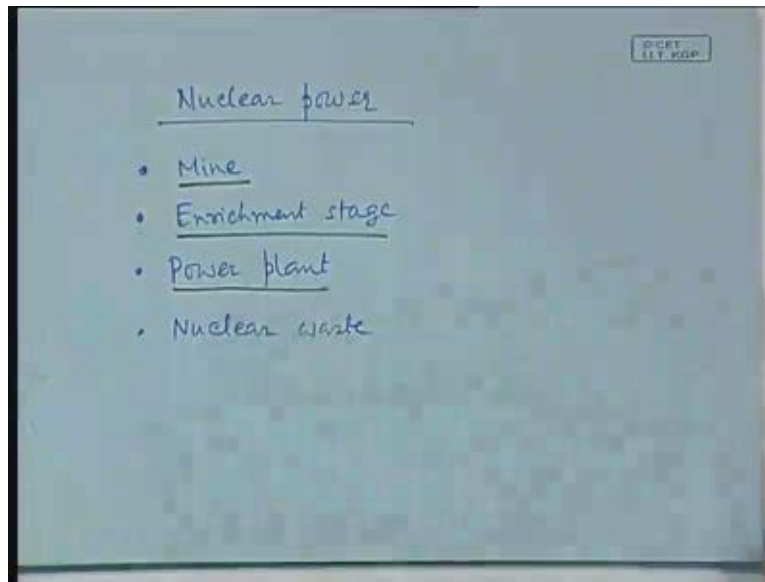 © CET
I.I.T. KGP
Nuclear power
• Mine
• Enrichment stage
• Power plant
• Nuclear waste